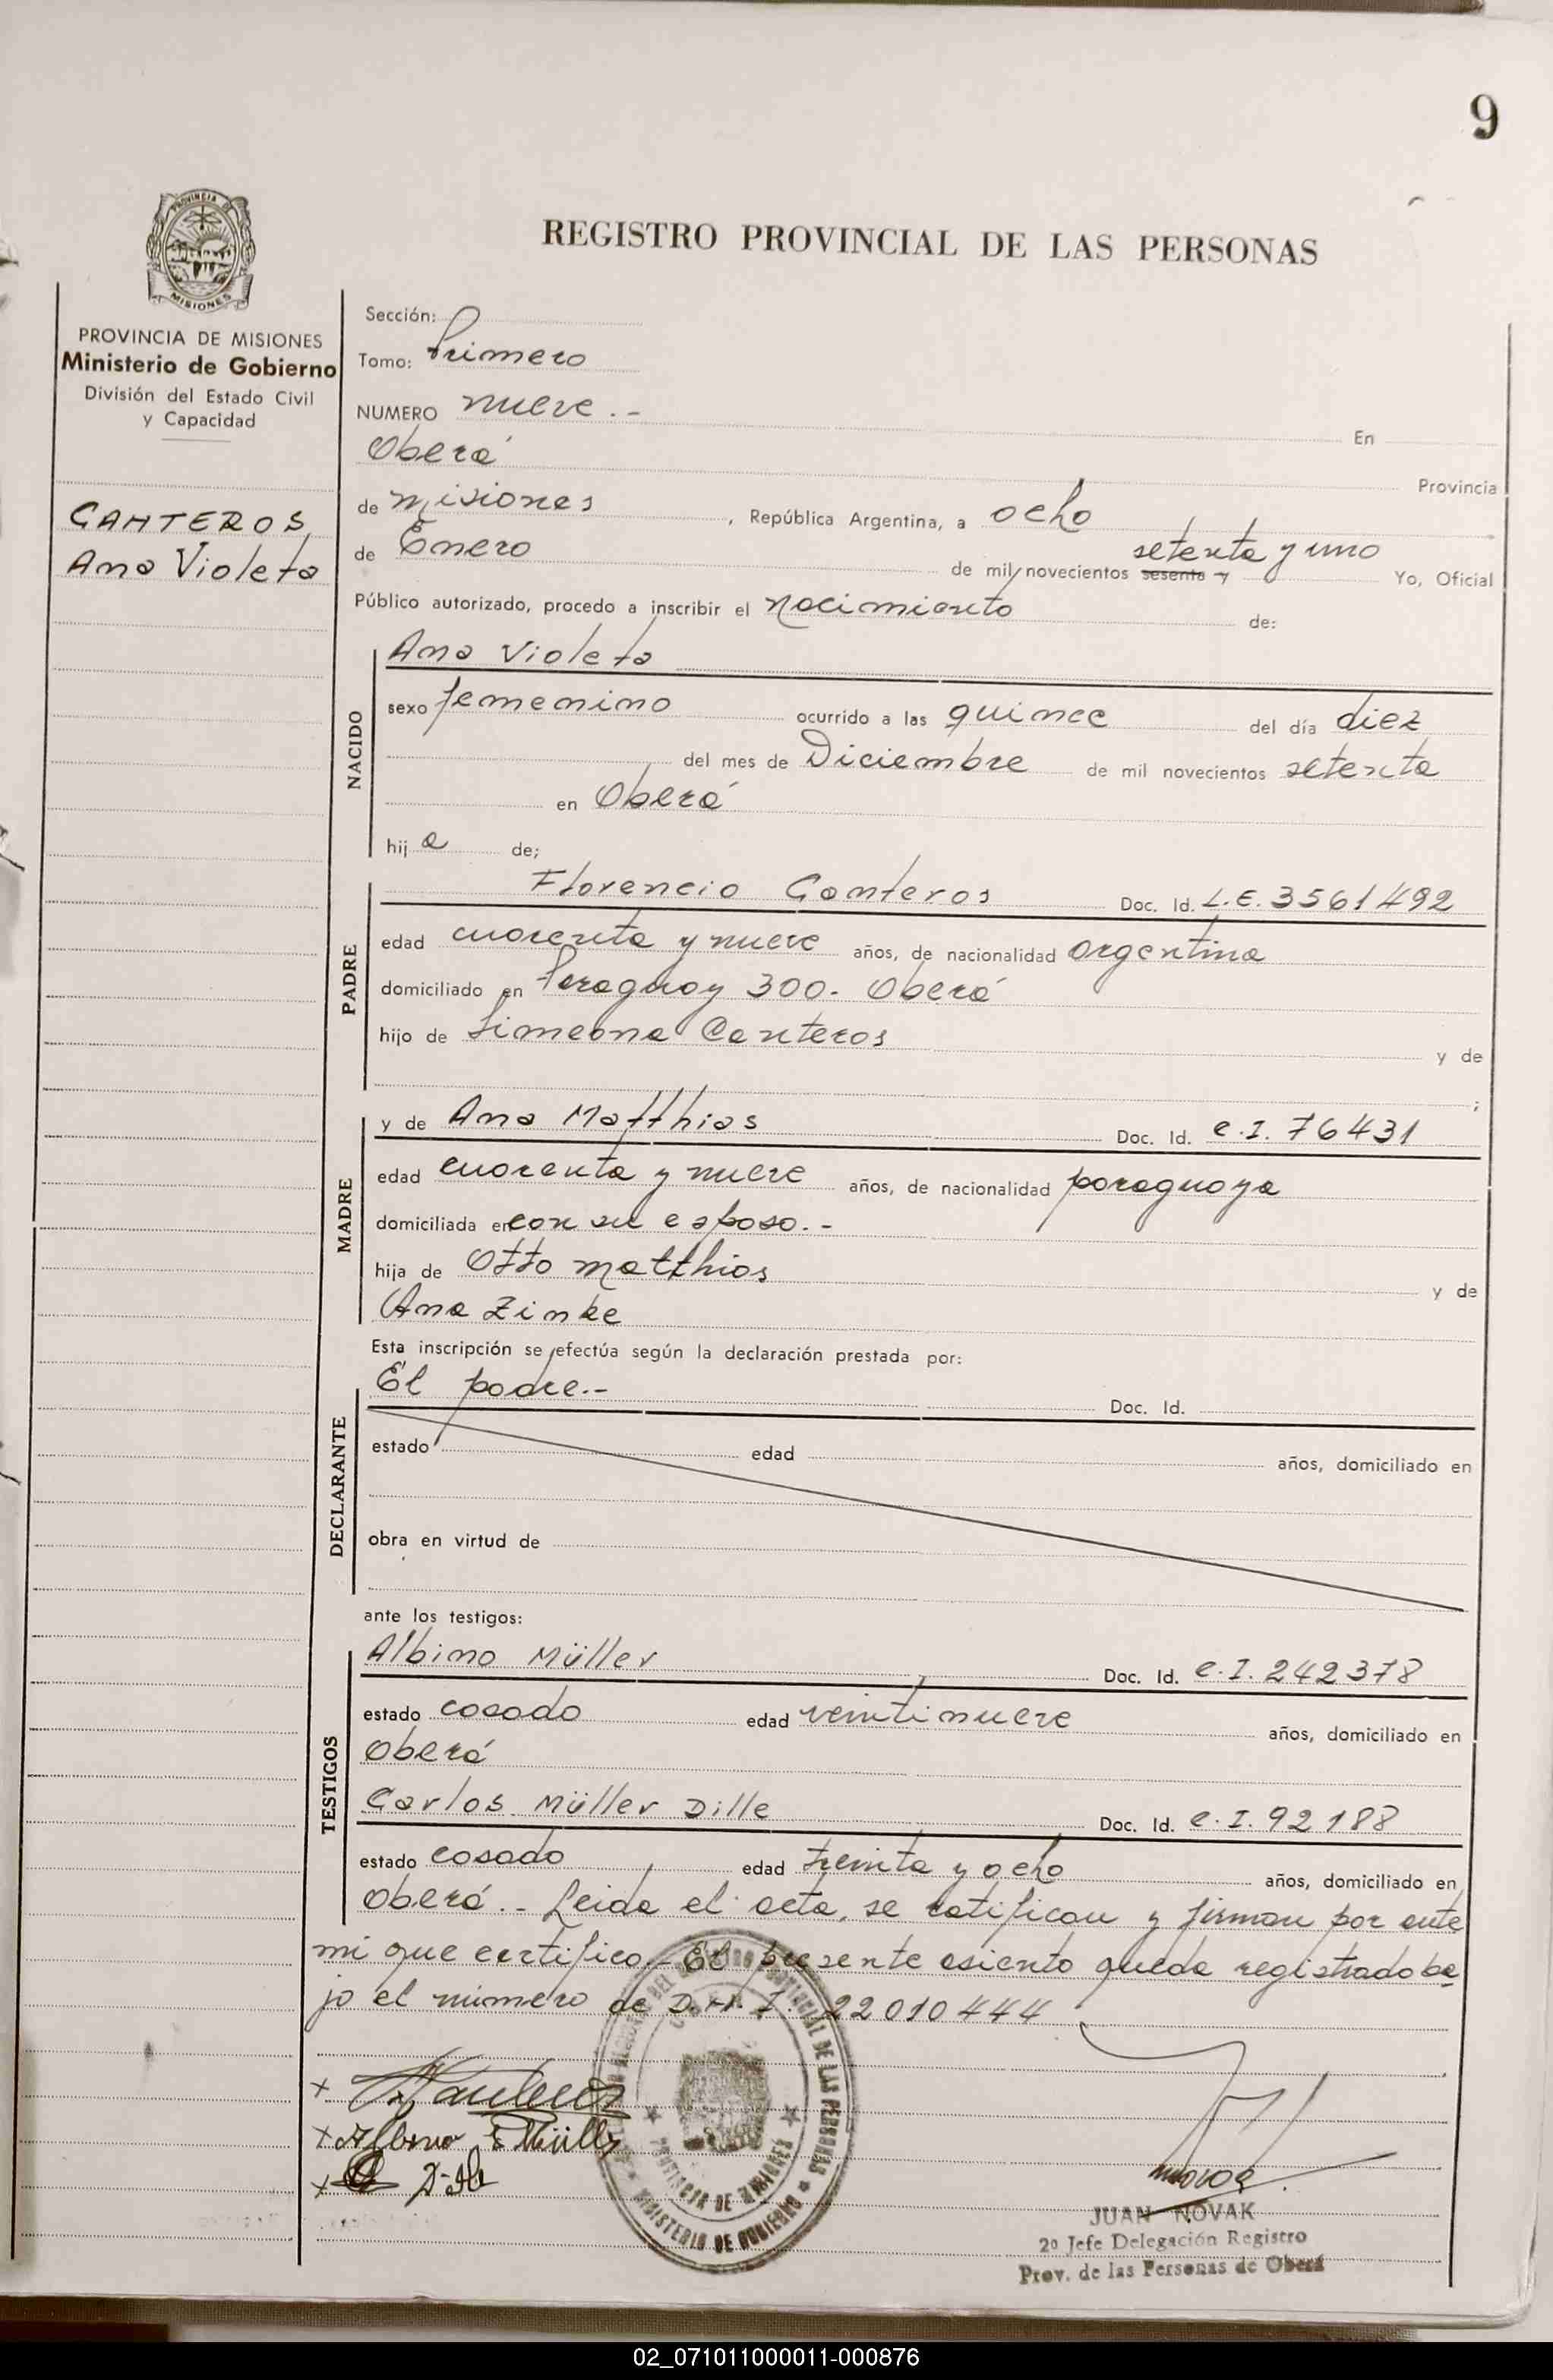 9
PROVINCIA DE
MISIONES
REGISTRO PROVINCIAL DE LAS PERSONAS
PROVINCIA DE MISIONES
Ministerio de Gobierno
División del Estado Civil
y Capacidad
CANTEROS,
Ana Violeta
Sección:
Tomo: Primero
NUMERO nueve.- En
Oberá Provincia
de Misiones, República Argentina, a ocho
de Enero de mil novecientos sesenta y setenta y uno Yo, Oficial
Público autorizado, procedo a inscribir el nacimiento de:
NACIDO
Ana Violeta
sexo femenino ocurrido a las quince del día diez
del mes de Diciembre de mil novecientos setenta
en Oberá
hij a de;
PADRE
Florencio Canteros Doc. Id. L.E. 3561492
edad cuarenta y nueve años, de nacionalidad argentina
domiciliado en Paraguay 300.- Oberá
hijo de Simeona Canteros y de
;
MADRE
y de Ana Matthias Doc. Id. C.I. 76431
edad cuarenta y nueve años, de nacionalidad paraguaya
domiciliada en con su esposo.-
hija de Otto Matthias y de
Ana Zinke
Esta inscripción se efectúa según la declaración prestada por:
DECLARANTE
El padre.- Doc. Id.
estado edad años, domiciliado en
obra en virtud de
ante los testigos:
TESTIGOS
Albino Müller Doc. Id. C.I. 242378
estado casado edad veintinueve años, domiciliado en
Oberá
Carlos Müller Dille Doc. Id. C.I. 92188
estado casado edad treinta y ocho años, domiciliado en
Oberá.- Leida el acta, se ratifican y firman por ante
mi que certifico.- El presente asiento queda registrado ba
jo el número de D.N.I. 22010444
x
x Albino Müller
x
PROVINCIAL DE LAS PERSONAS
PROVINCIA DE MISIONES
MINISTERIO DE GOBIERNO
JUAN NOVAK
2º Jefe Delegación Registro
Prov. de las Personas de Oberá
02_071011000011-000876